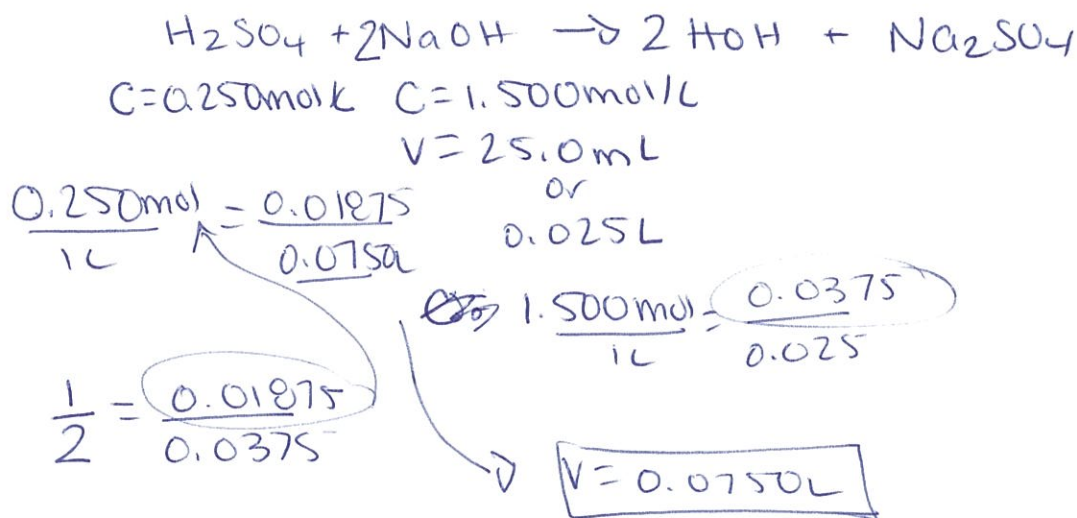 H₂SO₄ + 2NaOH → 2 HOH + Na₂SO₄
C=0.250mol/L C=1.500mol/L
V=25.0mL
or
0.025L
0.250mol/1L = 0.01875/0.0750L
1.500mol/1L = 0.0375/0.025
1/2 = 0.01875/0.0375
V=0.0750L